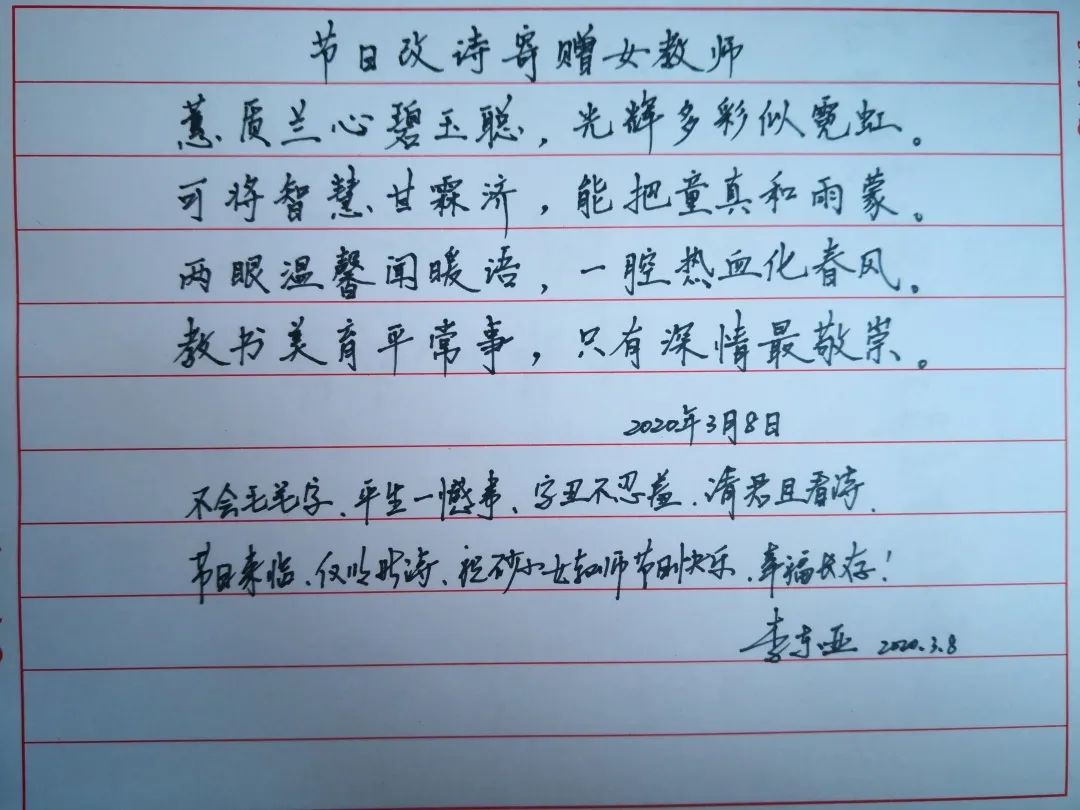 节日改诗寄赠女教师
蕙质兰心碧玉聪，光辉多彩似霓虹。
可将智慧甘霖济，能把童真和雨蒙。
两眼温馨闻暖语，一腔热血化春风。
教书美育平常事，只有深情最敬崇。
2020年3月8日
不会毛笔字、平生一憾事、字丑不忍羞、请君且看诗.
节日来临、仅以此诗、祝砂小女教师节日快乐、幸福长存！
李东亚 2020.3.8